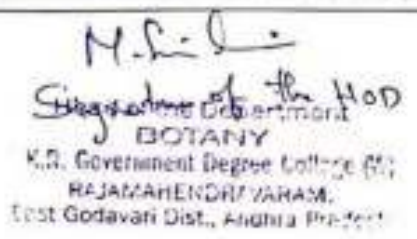 Signature of the HOD
Department
BOTANY
Government Degree College
RAJAMAHENDRAVARAM,
East Godavari Dist., Andhra Pradesh